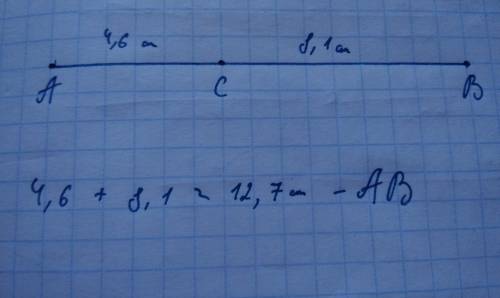 4,6 см 8,1 см
A C B
4,6 + 8,1 = 12,7 см - AB